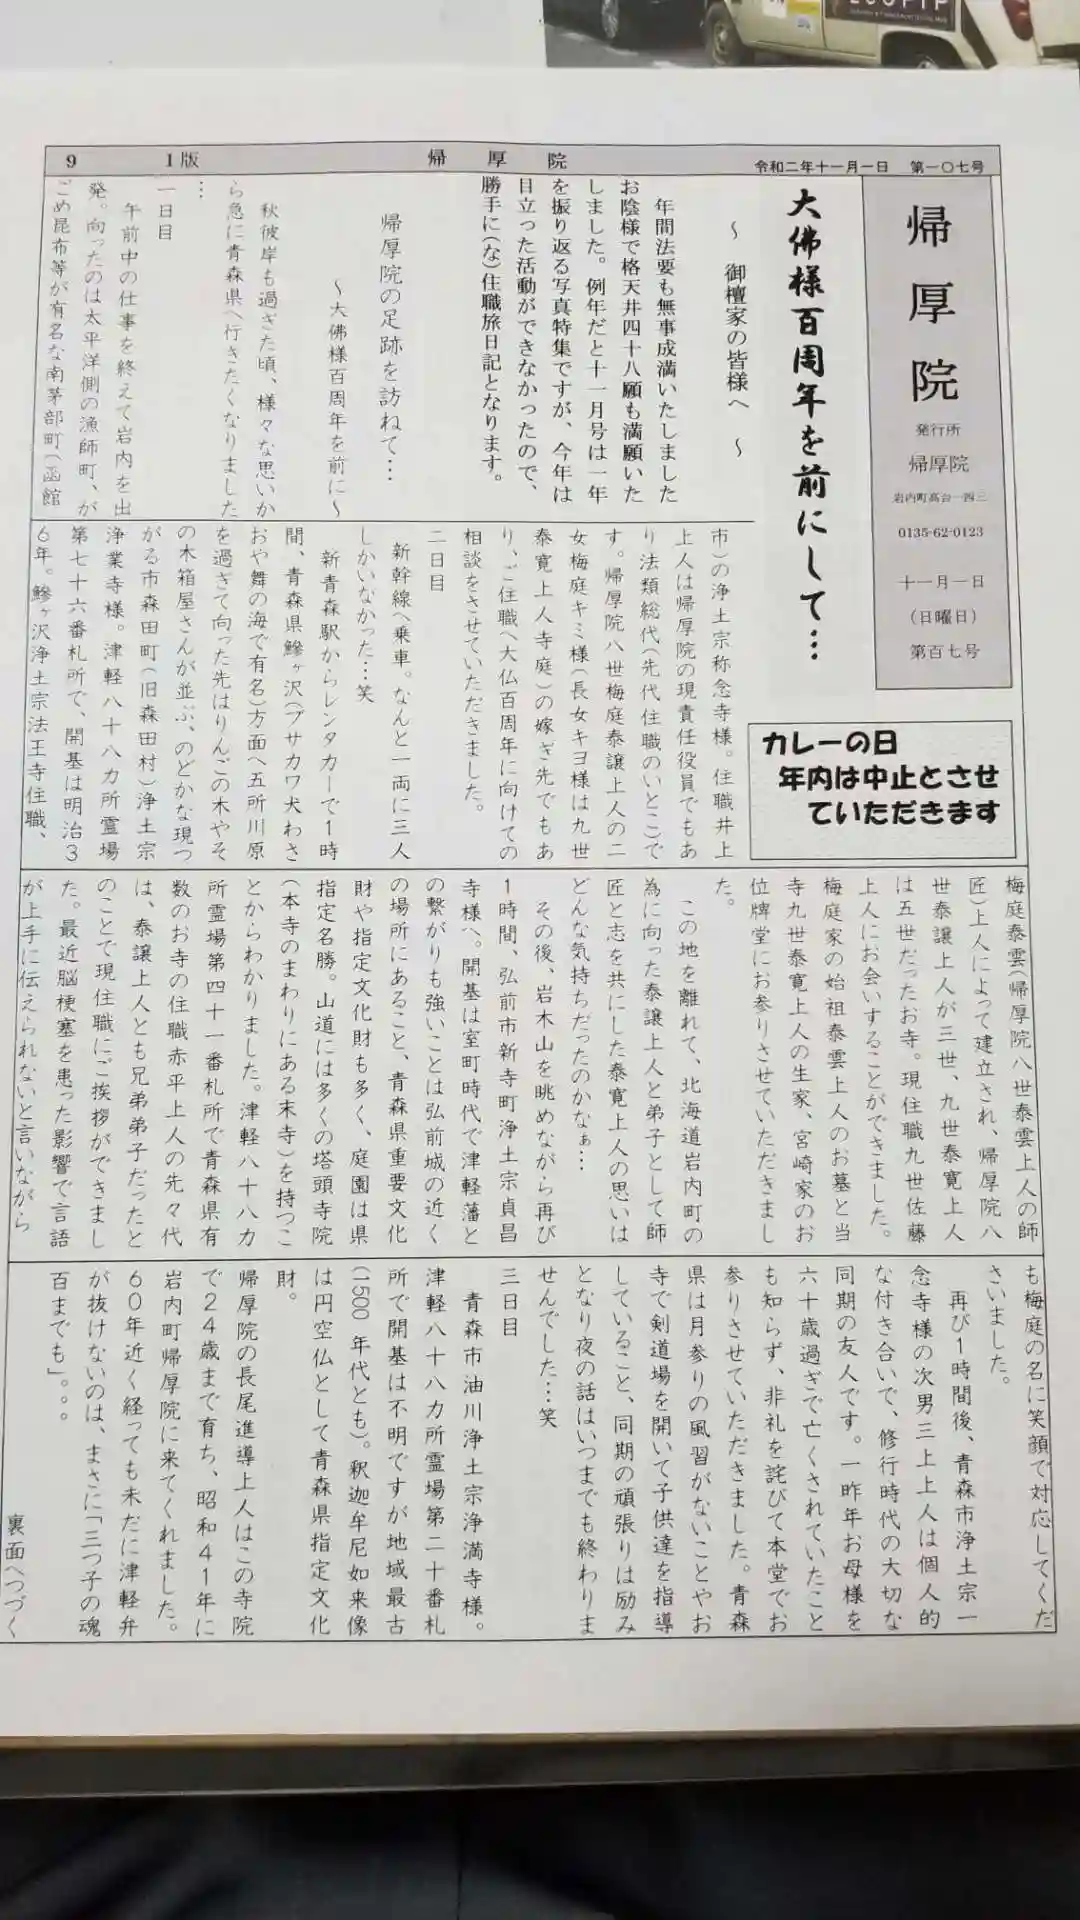 9 1版 帰厚院 令和二年十一月一日 第一〇七号
帰厚院
発行所
帰厚院
岩内町高台一四三
0135-62-0123
十一月一日
(日曜日)
第百七号
大佛様百周年を前にして…
～ 御檀家の皆様へ ～
年間法要も無事成満いたしました
お陰様で格天井四十八願も満願いた
しました。例年だと十一月号は一年
を振り返る写真特集ですが、今年は
目立った活動ができなかったので、
勝手に(な)住職旅日記となります。
帰厚院の足跡を訪ねて…
～大佛様百周年を前に～
秋彼岸も過ぎた頃、様々な思いか
ら急に青森県へ行きたくなりました
…
一日目
午前中の仕事を終えて岩内を出
発。向ったのは太平洋側の漁師町、が
ごめ昆布等が有名な南茅部町(函館
カレーの日
年内は中止とさせ
ていただきます
市)の浄土宗称念寺様。住職井上
上人は帰厚院の現責任役員でもあ
り法類総代(先代住職のいとこで
す。帰厚院八世梅庭泰譲上人の二
女梅庭キミ様(長女キヨ様は九世
泰寛上人寺庭)の嫁ぎ先でもあ
り、ご住職へ大仏百周年に向けての
相談をさせていただきました。
二日目
新幹線へ乗車。なんと一両に三人
しかいなかった…笑
新青森駅からレンタカーで1時
間、青森県鰺ヶ沢(ブサカワ犬わさ
おや舞の海で有名)方面へ五所川原
を過ぎて向った先はりんごの木やそ
の木箱屋さんが並ぶ、のどかな現つ
がる市森田町(旧森田村)浄土宗
浄業寺様。津軽八十八カ所霊場
第七十六番札所で、開基は明治3
6年。鰺ヶ沢浄土宗法王寺住職、
梅庭泰雲(帰厚院八世泰雲上人の師
匠)上人によって建立され、帰厚院八
世泰譲上人が三世、九世泰寛上人
は五世だったお寺。現住職九世佐藤
上人にお会いすることができました。
梅庭家の始祖泰雲上人のお墓と当
寺九世泰寛上人の生家、宮崎家のお
位牌堂にお参りさせていただきまし
た。
この地を離れて、北海道岩内町の
為に向った泰譲上人と弟子として師
匠と志を共にした泰寛上人の思いは
どんな気持ちだったのかなぁ…
その後、岩木山を眺めながら再び
1時間、弘前市新寺町浄土宗貞昌
寺様へ。開基は室町時代で津軽藩と
の繋がりも強いことは弘前城の近く
の場所にあること、青森県重要文化
財や指定文化財も多く、庭園は県
指定名勝。山道には多くの塔頭寺院
(本寺のまわりにある末寺)を持つこ
とからわかりました。津軽八十八カ
所霊場第四十一番札所で青森県有
数のお寺の住職赤平上人の先々代
は、泰譲上人とも兄弟弟子だったと
のことで現住職にご挨拶ができまし
た。最近脳梗塞を患った影響で言語
が上手に伝えられないと言いながら
も梅庭の名に笑顔で対応してくだ
さいました。
再び1時間後、青森市浄土宗一
念寺様の次男三上上人は個人的
な付き合いで、修行時代の大切な
同期の友人です。一昨年お母様を
六十歳過ぎで亡くされていたこと
も知らず、非礼を詫びて本堂でお
参りさせていただきました。青森
県は月参りの風習がないことやお
寺で剣道場を開いて子供達を指導
していること、同期の頑張りは励み
となり夜の話はいつまでも終わりま
せんでした…笑
三日目
青森市油川浄土宗浄満寺様。
津軽八十八カ所霊場第二十番札
所で開基は不明ですが地域最古
(1500年代とも)。釈迦牟尼如来像
は円空仏として青森県指定文化
財。
帰厚院の長尾進導上人はこの寺院
で24歳まで育ち、昭和41年に
岩内町帰厚院に来てくれました。
60年近く経っても未だに津軽弁
が抜けないのは、まさに「三つ子の魂
百までも」。。。
裏面へつづく